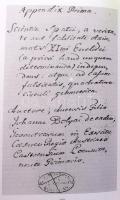 Appendix Prima.
Scientia Spatii, a verita-
te aut falsitate Axio-
matis XImi Euclidei
(a priori haud unquam
decidenda) indepen-
dens: atque, ad casum
falsitatis, quadratura
circuli geometrica.
Auctore, auctoris filio
Johanne Bolyai de eadem,
Geometrarum in Exercitu
Caesareo Regio Austriaco
Castrensium
nente Primario.